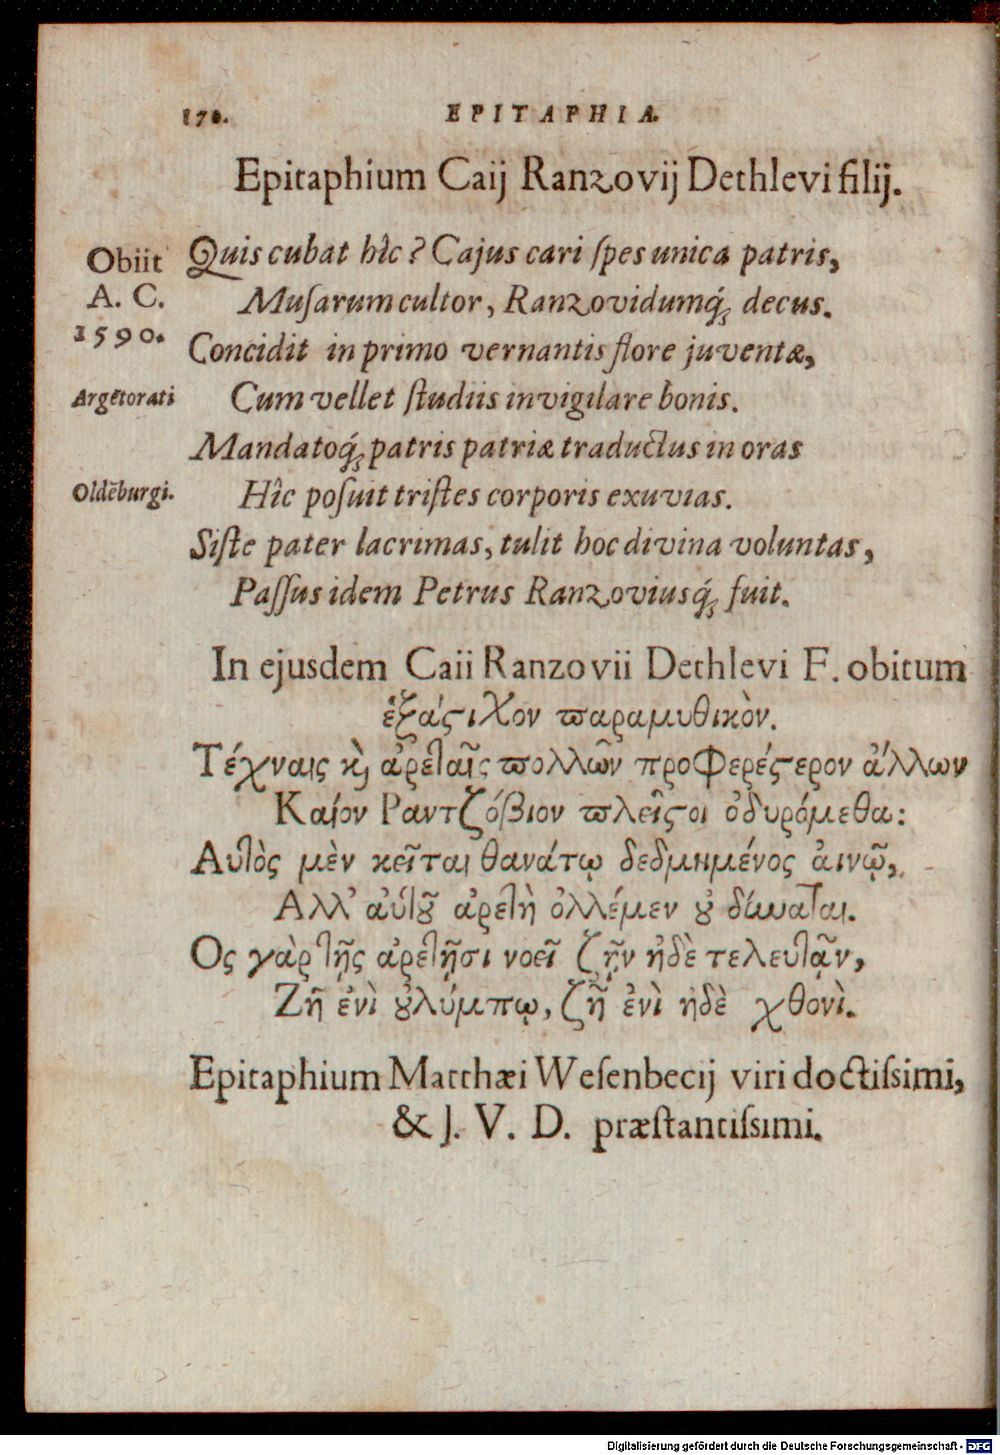 170. EPITAPHIA.
Epitaphium Caij Ranzovij Dethlevi filij.
Obiit
A. C.
1590.
Quis cubat hîc? Cajus cari ſpes unica patris,
Muſarum cultor, Ranzovidumq́; decus.
Concidit in primo vernantis flore juventæ,
Argẽtorati
Cum vellet ſtudiis invigilare bonis.
Mandatoq́; patris patriæ traductus in oras
Oldẽburgi.
Hîc poſuit triſtes corporis exuvias.
Siſte pater lacrimas, tulit hoc divina voluntas,
Paſſus idem Petrus Ranzoviusq́; fuit.
In ejusdem Caii Ranzovii Dethlevi F. obitum
ἑξάϛιχον ϖαραμυθικὸν.
Τέχναις ϗ ἀρεταῖς ϖολλῶν προφερέϛερον ἄλλων
Καῖον Ραντζόβιον ϖλεῖϛοι ὀδυρόμεθα:
Αυτὸς μὲν κεῖται θανάτῳ δεδμημένος ἀινῷ,
Αλλ' αύτοῦ ἀρετὴ ὀλλέμεν οὐ δύναται.
Ος γὰρ τῆς ἀρετῇσι νοεῖ ζῇν ἠδὲ τελευτᾷν,
Ζῆ ἐνὶ ουλύμπῳ, ζῆ ἐνὶ ηδὲ χθονὶ.
Epitaphium Matthæi Weſenbecij viri doctiſsimi,
& J. V. D. præſtantiſsimi.
Digitalisierung gefördert durch die Deutsche Forschungsgemeinschaft - DFG